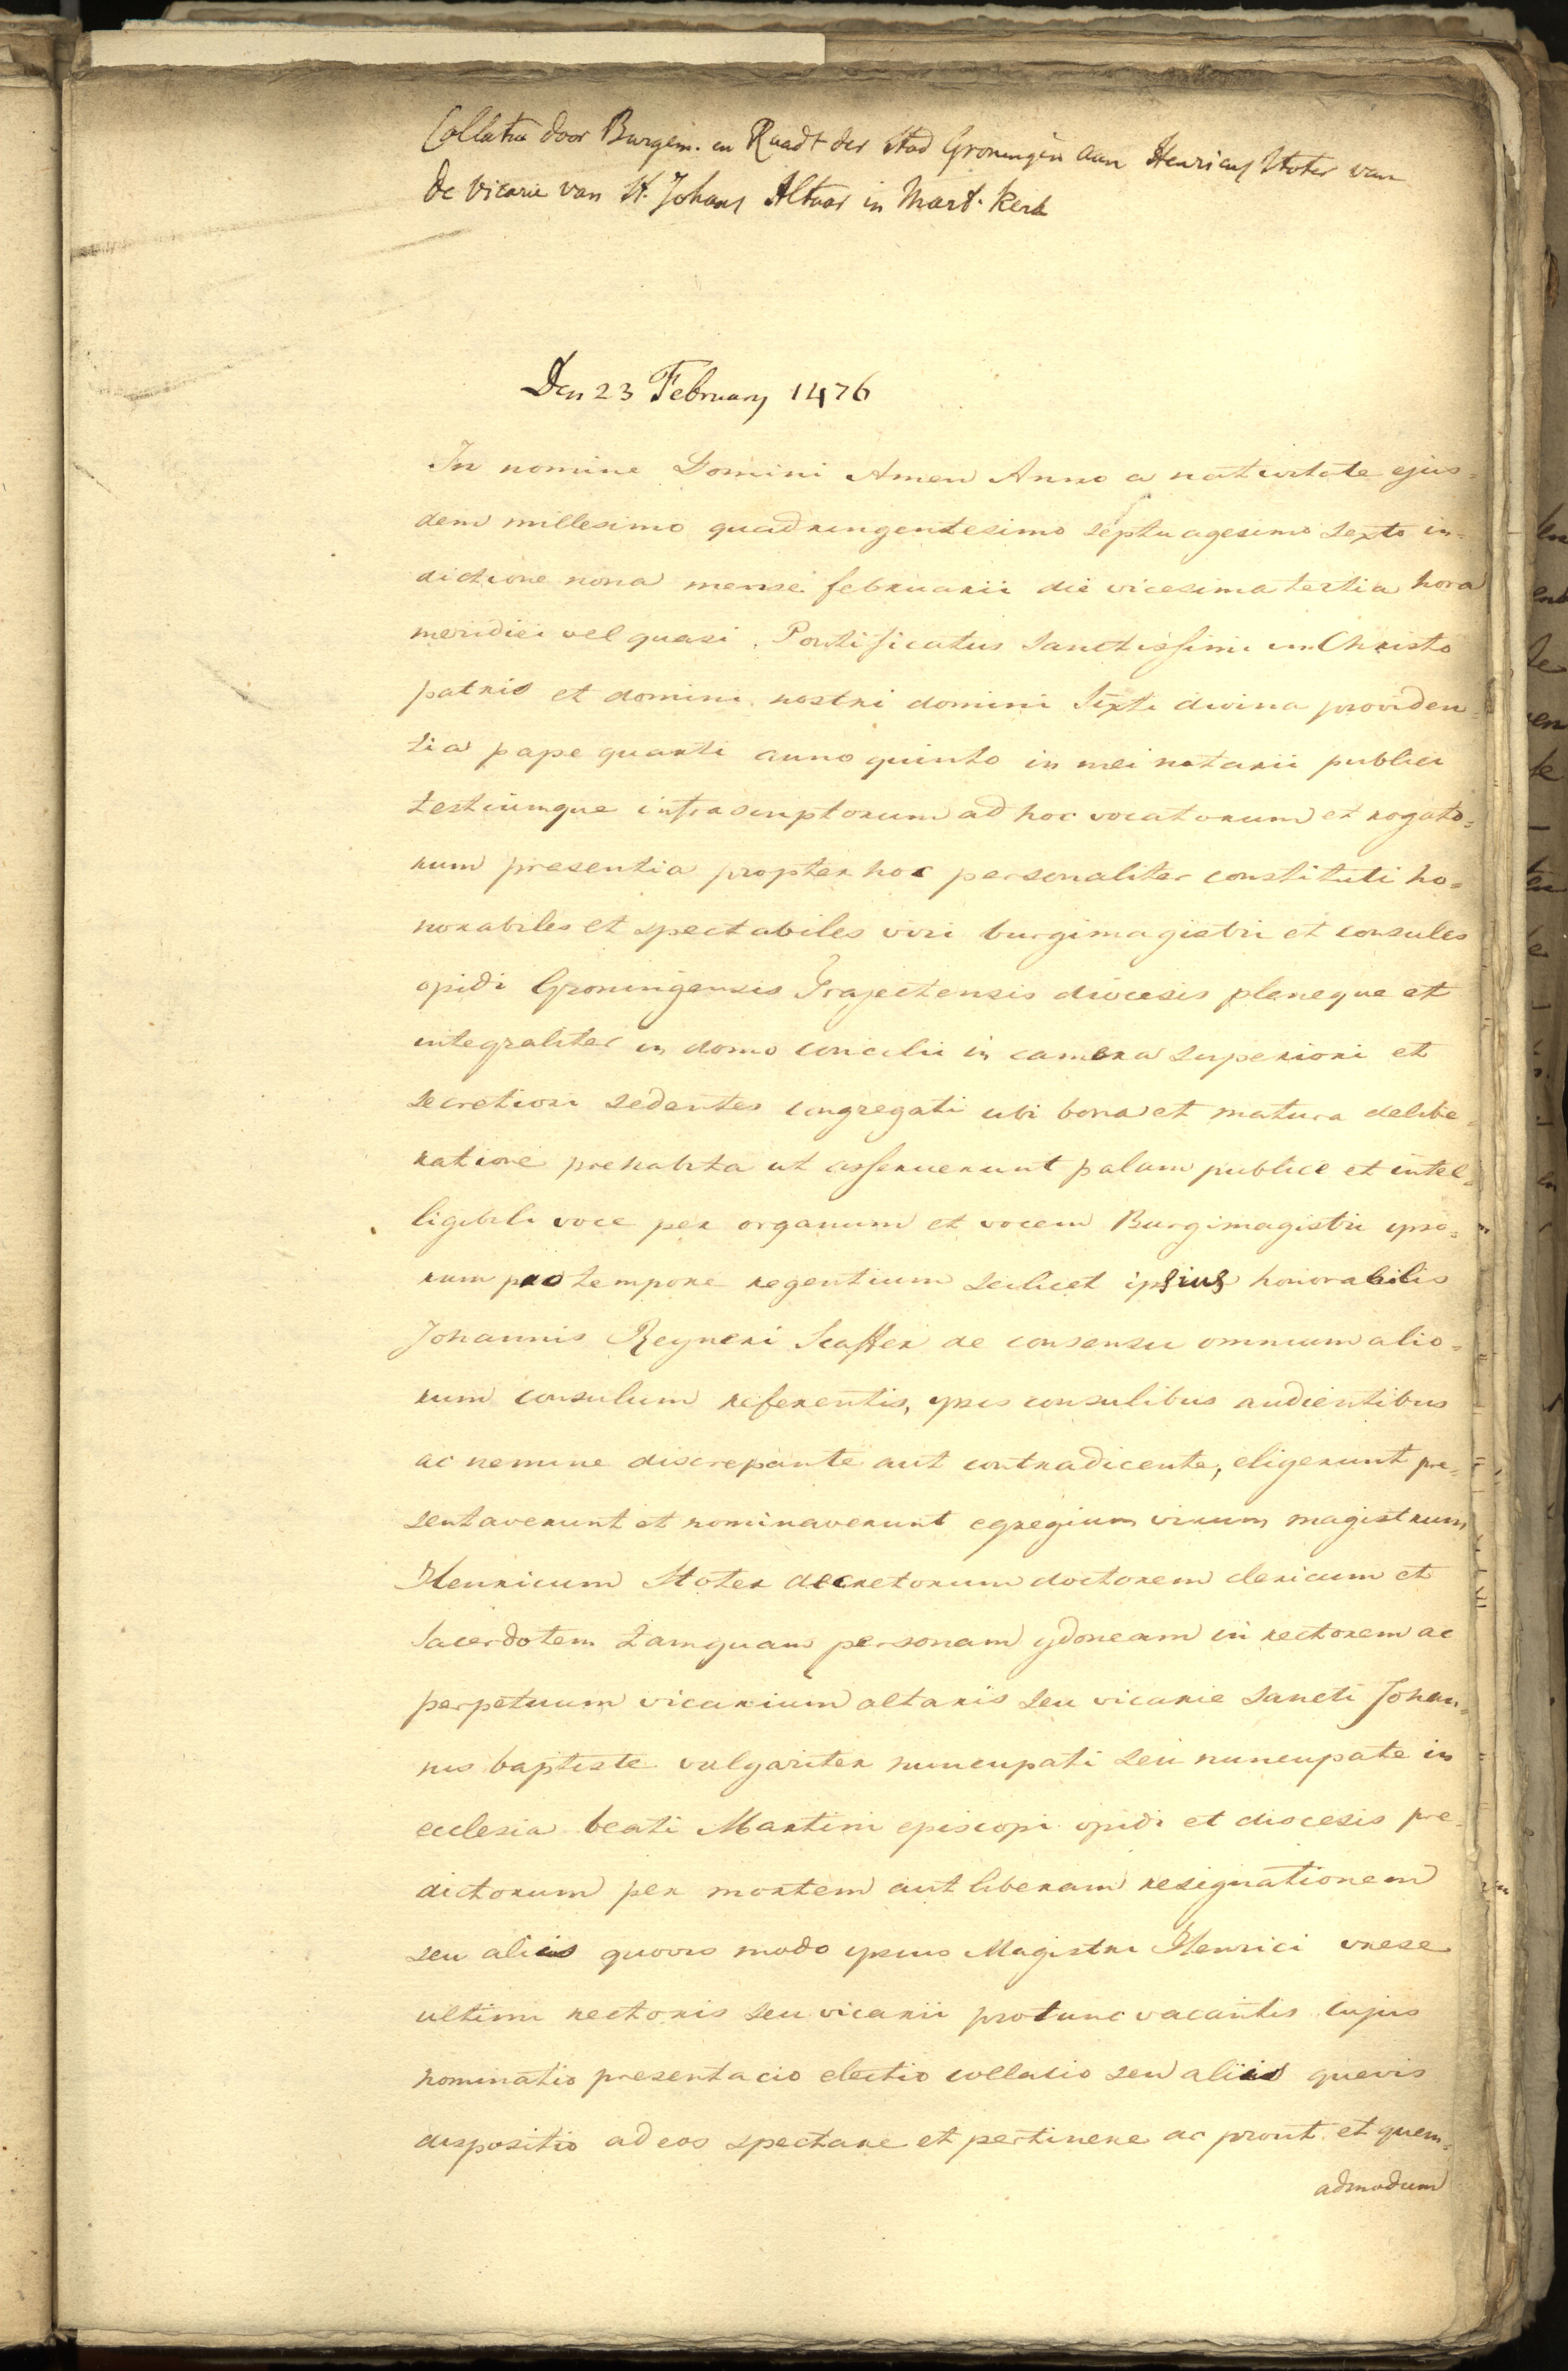 Collatie door Burgem. en Raadt der Stad Groningen aan Henricus Stoter van
de Vicarie van St. Johans Altaar in Mart. Kerk
Den 23 February 1476
In nomine Domini Amen Anno a nativitate ejus=
dem millesimo quadringentesimo septuagesimo sexto in=
dictione nona mense februarii die vicesima tertia hora
meridiei vel quasi. Pontificatus sanctissimi in Christo
patris et domini nostri domini Sixti divina providen=
tia pape quarti anno quinto in mei notarii publici
testiumque infrascriptorum ad hoc vocatorum et rogato=
rum presentia propter hoc personaliter constituti ho=
norabiles et spectabiles viri burgimagistri et consules
opidi Groningensis Trajectensis diocesis pleneque et
integraliter in domo concilii in camera superiori et
secretiori sedentes congregati ubi bona et matura delibe=
ratione prehabita ut asseruerunt palam publice et intel=
ligibili voce per organum et vocem Burgimagistri ipso=
rum pro tempore regentium scilicet ipsius honorabilis
Johannis Reyneri Scaffer de consensu omnium alio=
rum consulum referentis, ipsis consulibus audientibus
ac nemine discrepante aut contradicente, eligerunt pre=
sentaverunt et nominaverunt egregium virum magistrum
Henricum Stoter decretorum doctorem clericum et
sacerdotem tamquam personam ydoneam in rectorem ac
perpetuum vicarium altaris seu vicarie sancti Johan=
nis baptiste vulgariter nuncupati seu nuncupate in
ecclesia beati Martini episcopi opidi et diocesis pre=
dictorum per mortem aut liberam resignationem
seu alias quovis modo ipsius Magistri Henrici vrese
ultimi rectoris seu vicarii pro tunc vacantis cujus
nominatio presentacio electio collacio seu alias quevis
dispositio ad eos spectare et pertinere ac prout et quem=
admodum